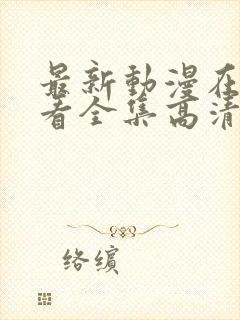 最新動漫在
看全集高清
络缤